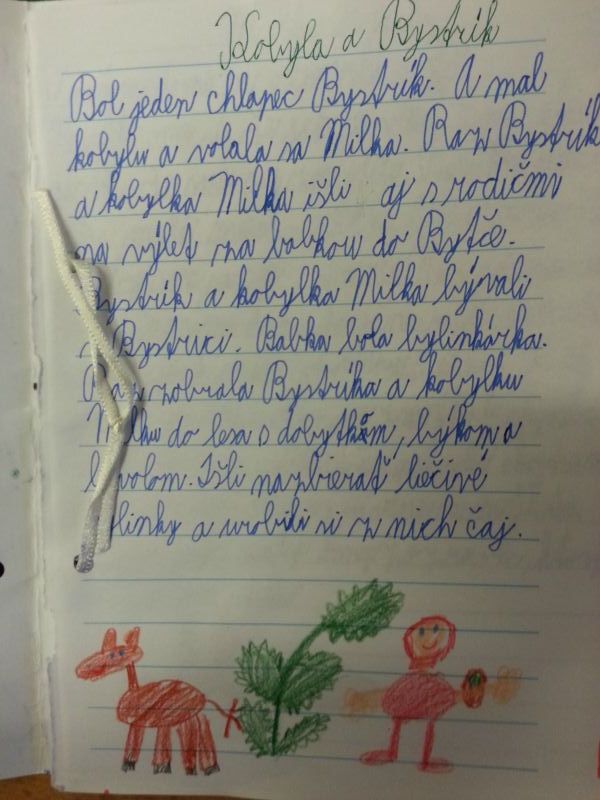 Kobyla a Bystrík
Bol jeden chlapec Bystrík. A mal
kobylu a volala sa Milka. Raz Bystrík
a kobylka Milka išli aj s rodičmi
na výlet za babkou do Bytče.
Bystrík a kobylka Milka bývali
Bystrici. Babka bola bylinkárka.
Raz zobrala Bystríka a kobylku
do lesa s dobytkom, býkom a
Išli nazbierať liečivé
a urobili si z nich čaj.